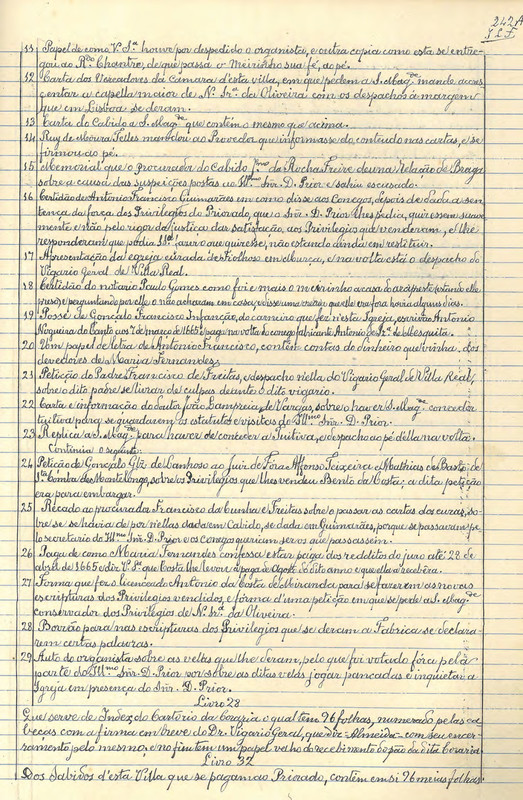 242A
J.L.F.
11 Papel de como V. Sª. houve por despedido o organista, e outra copia como esta se entre-
gou ao Rdo Chantre, de que passa o Meirinho sua fé, ao pé.
12 Carta dos Vereadores da Camara d'esta villa, em que pedem a S. Magde. mande acres-
centar a capella maior de N. Srª. da Oliveira com os despachos á margem
que em Lisboa se deram.
13 Carta do Cabido a S. Magde. que contém o mesmo que acima.
14 Ruy de Moura Telles mandou ao Provedor que informasse do conteudo nas cartas, e se
firmou ao pé.
15 Memorial que o procurador do Cabido da Rocha Freire deu na Relação de Braga
sobre a causa das suspeições postas ao Illmo Snr. D. Prior e sahiu escusado.
16 Certidão de Antonio Francisco Guimarães em como disse aos Conegos, depois de dada a sen-
tença da força dos Privilegios do Priorado, que o Snr. D. Prior lhes pedia, quizessem suave
mente e não pelo rigor da justiça das satisfação, aos Privilegios que venderam, e lhe
responderam que podia S. Sª. fazer o que quizesse, não estando ainda em restituir.
17 Apresentação da egreja curada de S. em Mouça, e na volta está o despacho do
Vigario Geral de Villa Real.
18 Certidão do notario Paulo Gomes como foi e mais o meirinho a casa do arcipreste estando elle
preso e perguntando por elle o não acharam em casa, e disse uma mulher que elle era fora havia alguns dias.
19 Posse de Gonçalo Francisco Infanção, do carneiro que fez n'esta Igreja, escrivão Antonio
Nogueira do Canto aos 2 de março de 1665 e paga na volta do conego fabricante Antonio de Mesquita.
20 Um papel de letra de Antonio Francisco, contém contas do dinheiro que vinha dos
devedores de Maria Fernandes.
21 Petição do Padre Francisco de Freitas, e despacho n'ella do Vigario Geral de Villa Real,
sobre o dito padre se livrar de culpas deante o dito vigario.
22 Carta e informação do Doutor João Sampaio de Vargas, sobre o haver S. Magde. conceder
tuitiva para se guardarem os estatutos e visitas do Illmo Snr. D. Prior.
23 Replica a S. Magde. para haver de conceder a Tuitiva, e despacho ao pé d'ella na volta.
Continua o seguinte:
24 Petição de Gonçalo Glz. de Canhoso ao Juiz de Fóra Affonso Teixeira e Mathias de Basto de
Stª. Comba de Monte Longo, sobre os Privilegios que lhes vendeu Bento da Costa; a dita petição
era para embargar.
25 Recado ao procurador Francisco da Cunha e Freitas sobre o passar as cartas dos curas, so-
bre se se havia de por nellas dada em Cabido, se dada em Guimarães, porque se passavam pe-
lo secretario do Illmo Snr. D. Prior e os conegos queriam ser os que passassem.
26 Paga de como Maria Fernandes confessa estar paga dos redditos do juro até 28 de
abril de 1665 e diz V. Sª. que Costa lhe levou a paga de Agosto do dito anno e que ella o recebêra.
27 Forma que fez o licenceado Antonio da Costa de Miranda para se fazerem as novas
escripturas dos Privilegios vendidos, e forma d'uma petição em que se pede a S. Magde.
conservador dos Privilegios de N. Srª. da Oliveira.
28 Borrão para nas escripturas dos Privilegios que se deram a Fabrica se declara-
rem certas palavras.
29 Auto do organista sobre as velas que lhe deram, pelo que foi votado fóra pela
parte do Illmo Snr. D. Prior por sobre as ditas velas jogar pancadas e inquietar a
Igreja em presença do Snr. D. Prior.
Livro 28
Que serve de Index do Cartorio da Coraria o qual tem 96 folhas, numerado pelas ca-
beças com a firma em breve do Dr. Vigario Geral, que diz - Almeida - com seu encer-
ramento pelo mesmo, e no fim tem um papel velho do recebimento do pão da dita Coraria.
Livro 32
Dos Sabidos d'esta Villa que se pagam ao Priorado, contém em si 96 meias folhas.